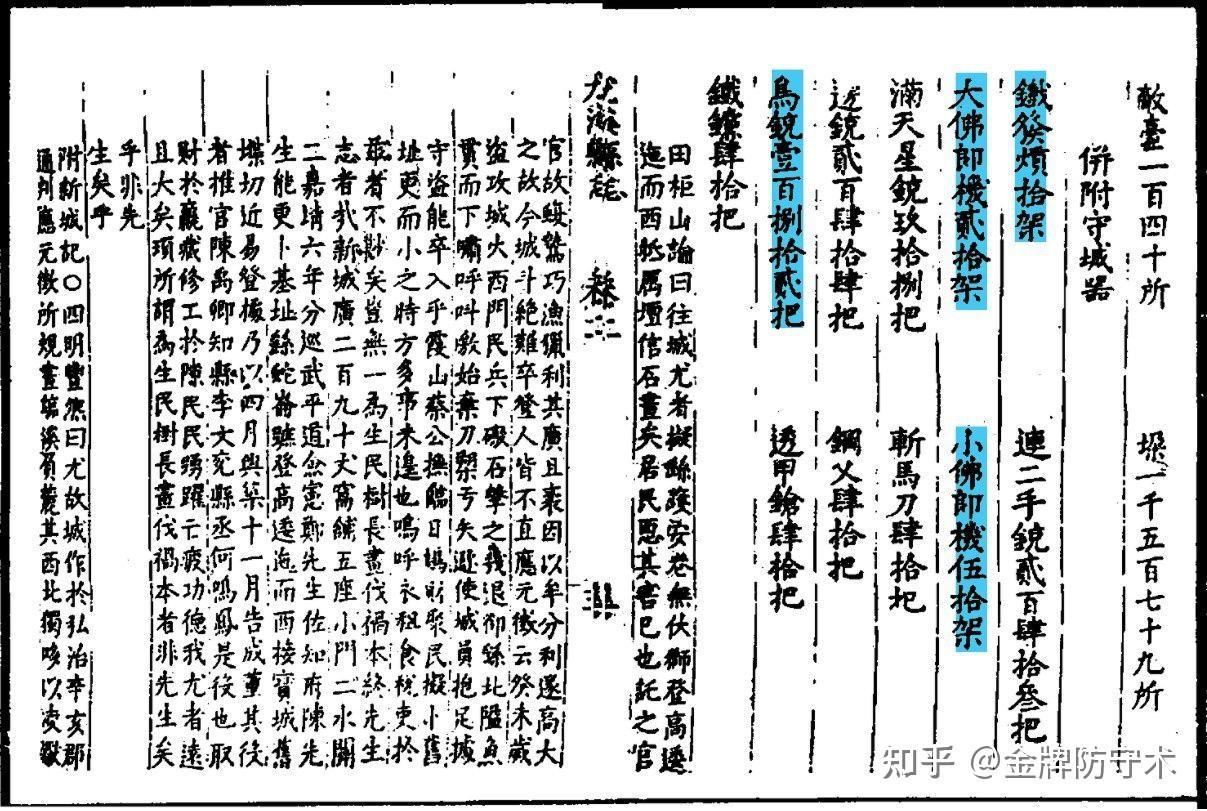 敵臺一百四十所　垜一千五百七十九所
併附守城器
鐵發熕拾架　連二手銃貳百肆拾叄把
大佛郎機貳拾架　小佛郎機伍拾架
滿天星銃玖拾捌把　斬馬刀肆拾把
邊銃貳百肆拾肆把　鋼乂肆拾把
鳥銃壹百捌拾貳把　透甲鎗肆拾把
鐵鐐肆拾把
田柜山論曰往城尤者擬縣後安卷無伏獅登高逶
迤而西形厲壇信石畫矣居民惡其害已也託之官
尤溪縣志　卷之二
官故蟃驁巧漁獵利其廣且袤因以牟分利遂高大
之故今城斗絕難卒登人皆不直應元徵云癸未歲
盜攻城大西門民兵下礮石擊之幾退御縣北隘魚
貫而下嘯呼叫歌始棄刀槊弓矢避使城員抱足據
守盜能卒入乎霞山蔡公撫臨日鳩財聚民擬小舊
址更而小之時方多事未遑也嗚呼衣租食稅吏於
茲者不尠矣豈無一為生民樹長畫伐禍本終先生
志者哉新城廣二百九十丈窩鋪五座小門二水關
二嘉靖六年分巡武平道僉憲鄭先生佐知府陳先
生能更卜基址縣蛇崙巔登高逶迤而西接寶城舊
堞切近易登據乃以四月興築十一月告成董其役
者推官陳禹卿知縣李文兖縣丞何鳴鳳是役也取
財於贓修工於陳民民踴躍亡疲功德我尤者遠
且大矣頊所謂為生民樹長畫伐禍本者非先生矣
乎非先
生矣乎
附新城記〇四明豐熙曰尤故城作於私治辛亥郡
通判應元徵所規畫其西北獨哆以凌
知乎 @金牌防守术